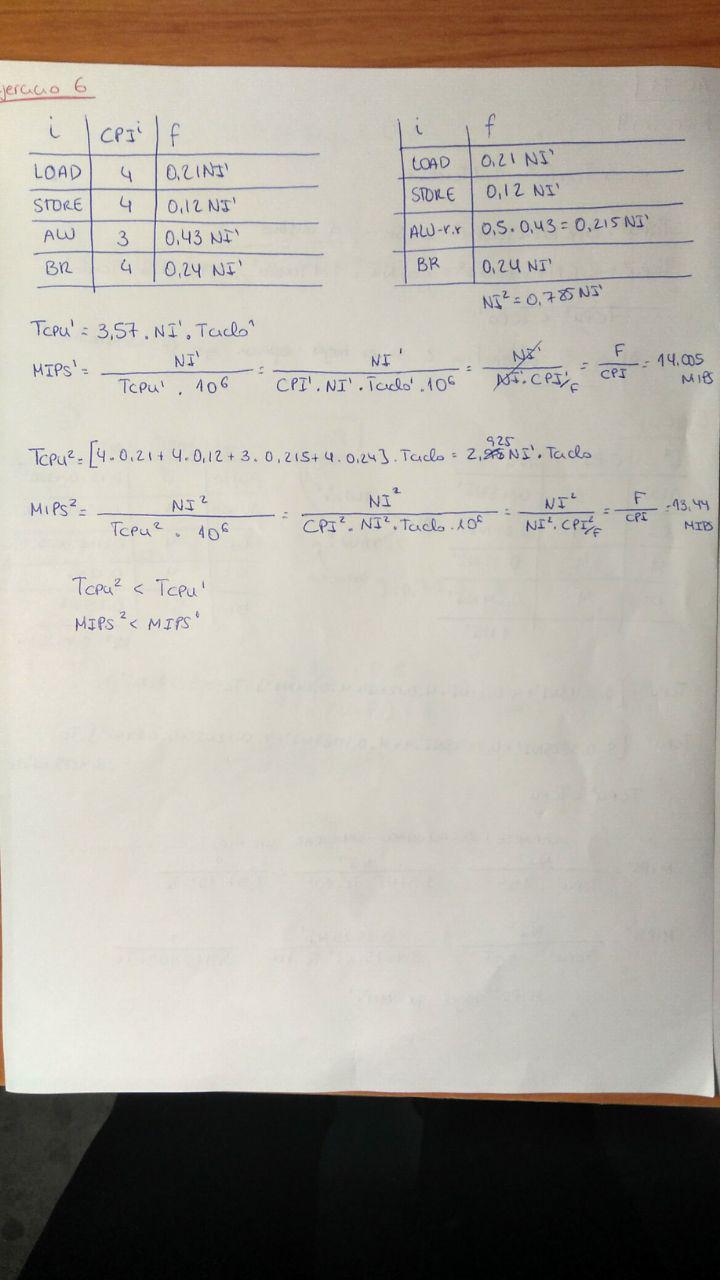 jercicio 6
i CPIⁱ f
LOAD 4 0,21NI¹
STORE 4 0,12 NI¹
ALU 3 0,43 NI¹
BR 4 0,24 NI¹
i f
LOAD 0,21 NI¹
STORE 0,12 NI¹
ALU-r.r 0,5.0,43 = 0,215 NI¹
BR 0,24 NI¹
NI² = 0,785 NI¹
Tcpu¹ = 3,57 . NI¹ . Tciclo¹
MIPS¹ = NI¹ / Tcpu¹ . 10⁶ = NI¹ / CPI¹ . NI¹ . Tciclo¹ . 10⁶ = NI¹ / NI¹ . CPI¹/F = F / CPI = 14.005 MIPS
Tcpu² = [4.0,21 + 4.0,12 + 3.0,215 + 4.0,24] . Tciclo = 2,925 NI¹ . Tciclo
MIPS² = NI² / Tcpu² . 10⁶ = NI² / CPI² . NI² . Tciclo . 10⁶ = NI² / NI² . CPI²/F = F / CPI = 13,44 MIPS
Tcpu² < Tcpu¹
MIPS² < MIPS¹